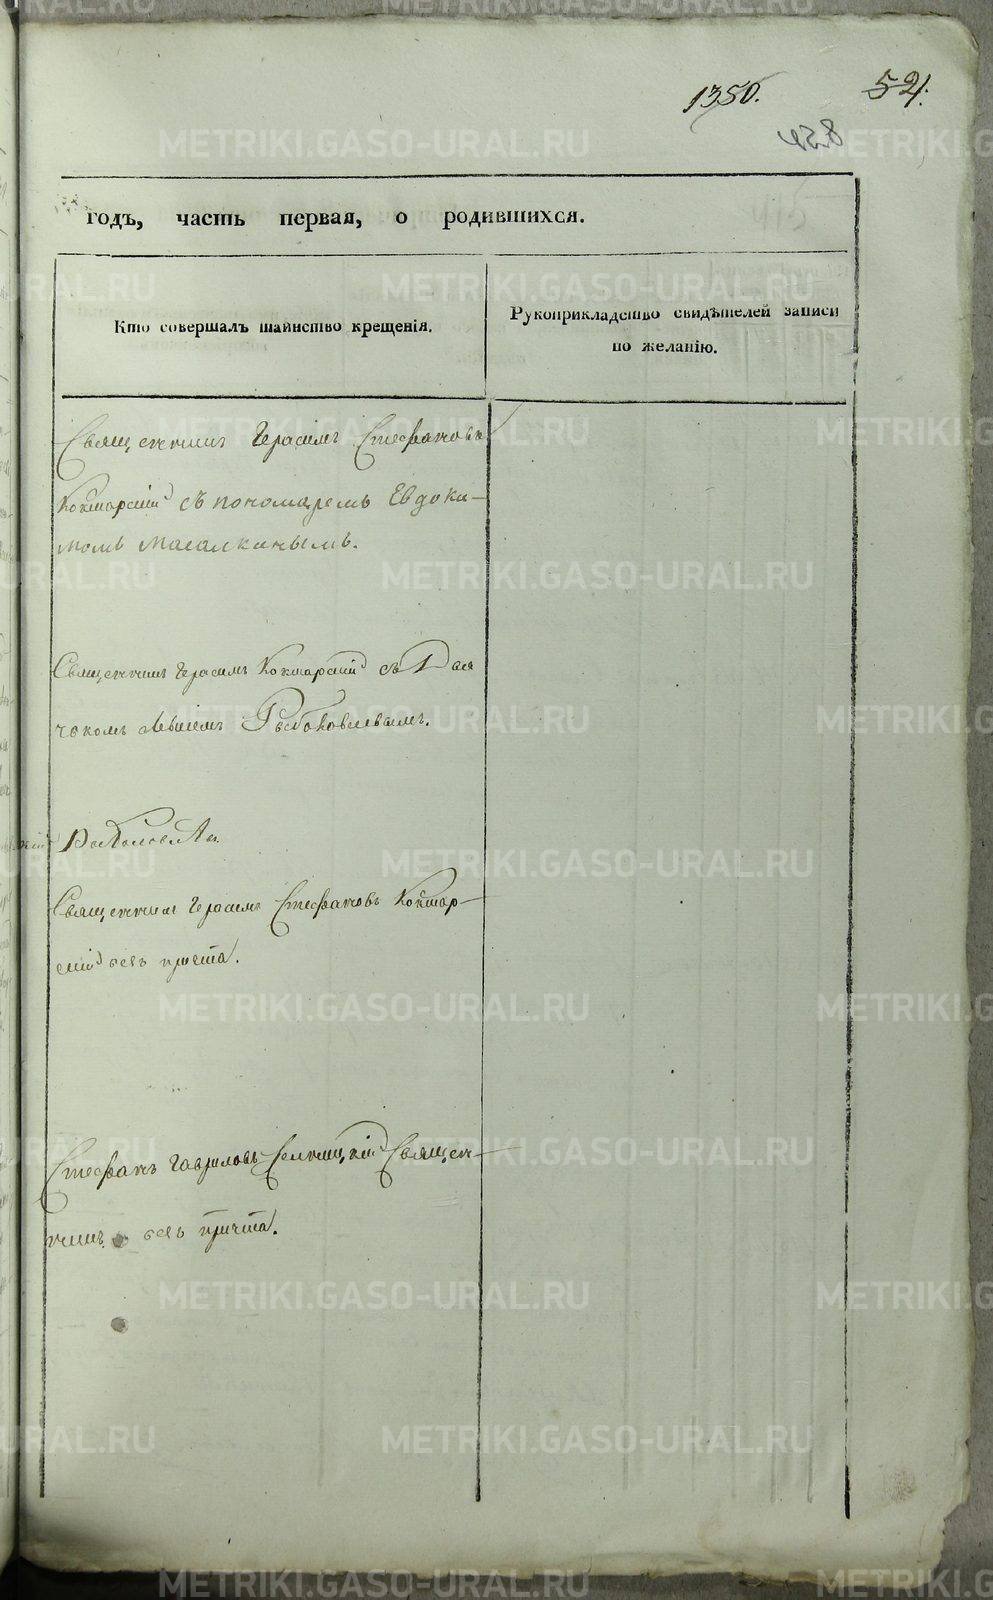 1350.
52.
458
годъ, часть первая, о родившихся.
Кто совершалъ таинство крещенія.
Рукоприкладство свидѣтелей записи
по желанію.
Священникъ Герасимъ Стефановъ
Кокшарскій съ пономаремъ Евдоки-
момъ Масалкинымъ.
Священникъ Герасимъ Кокшарскій съ Дья
чкомъ
Священникъ Герасимъ Стефановъ Кокшар-
скій безъ причта.
Стефанъ Гавриловъ Священ-
никъ безъ причта.
METRIKI.GASO-URAL.RU